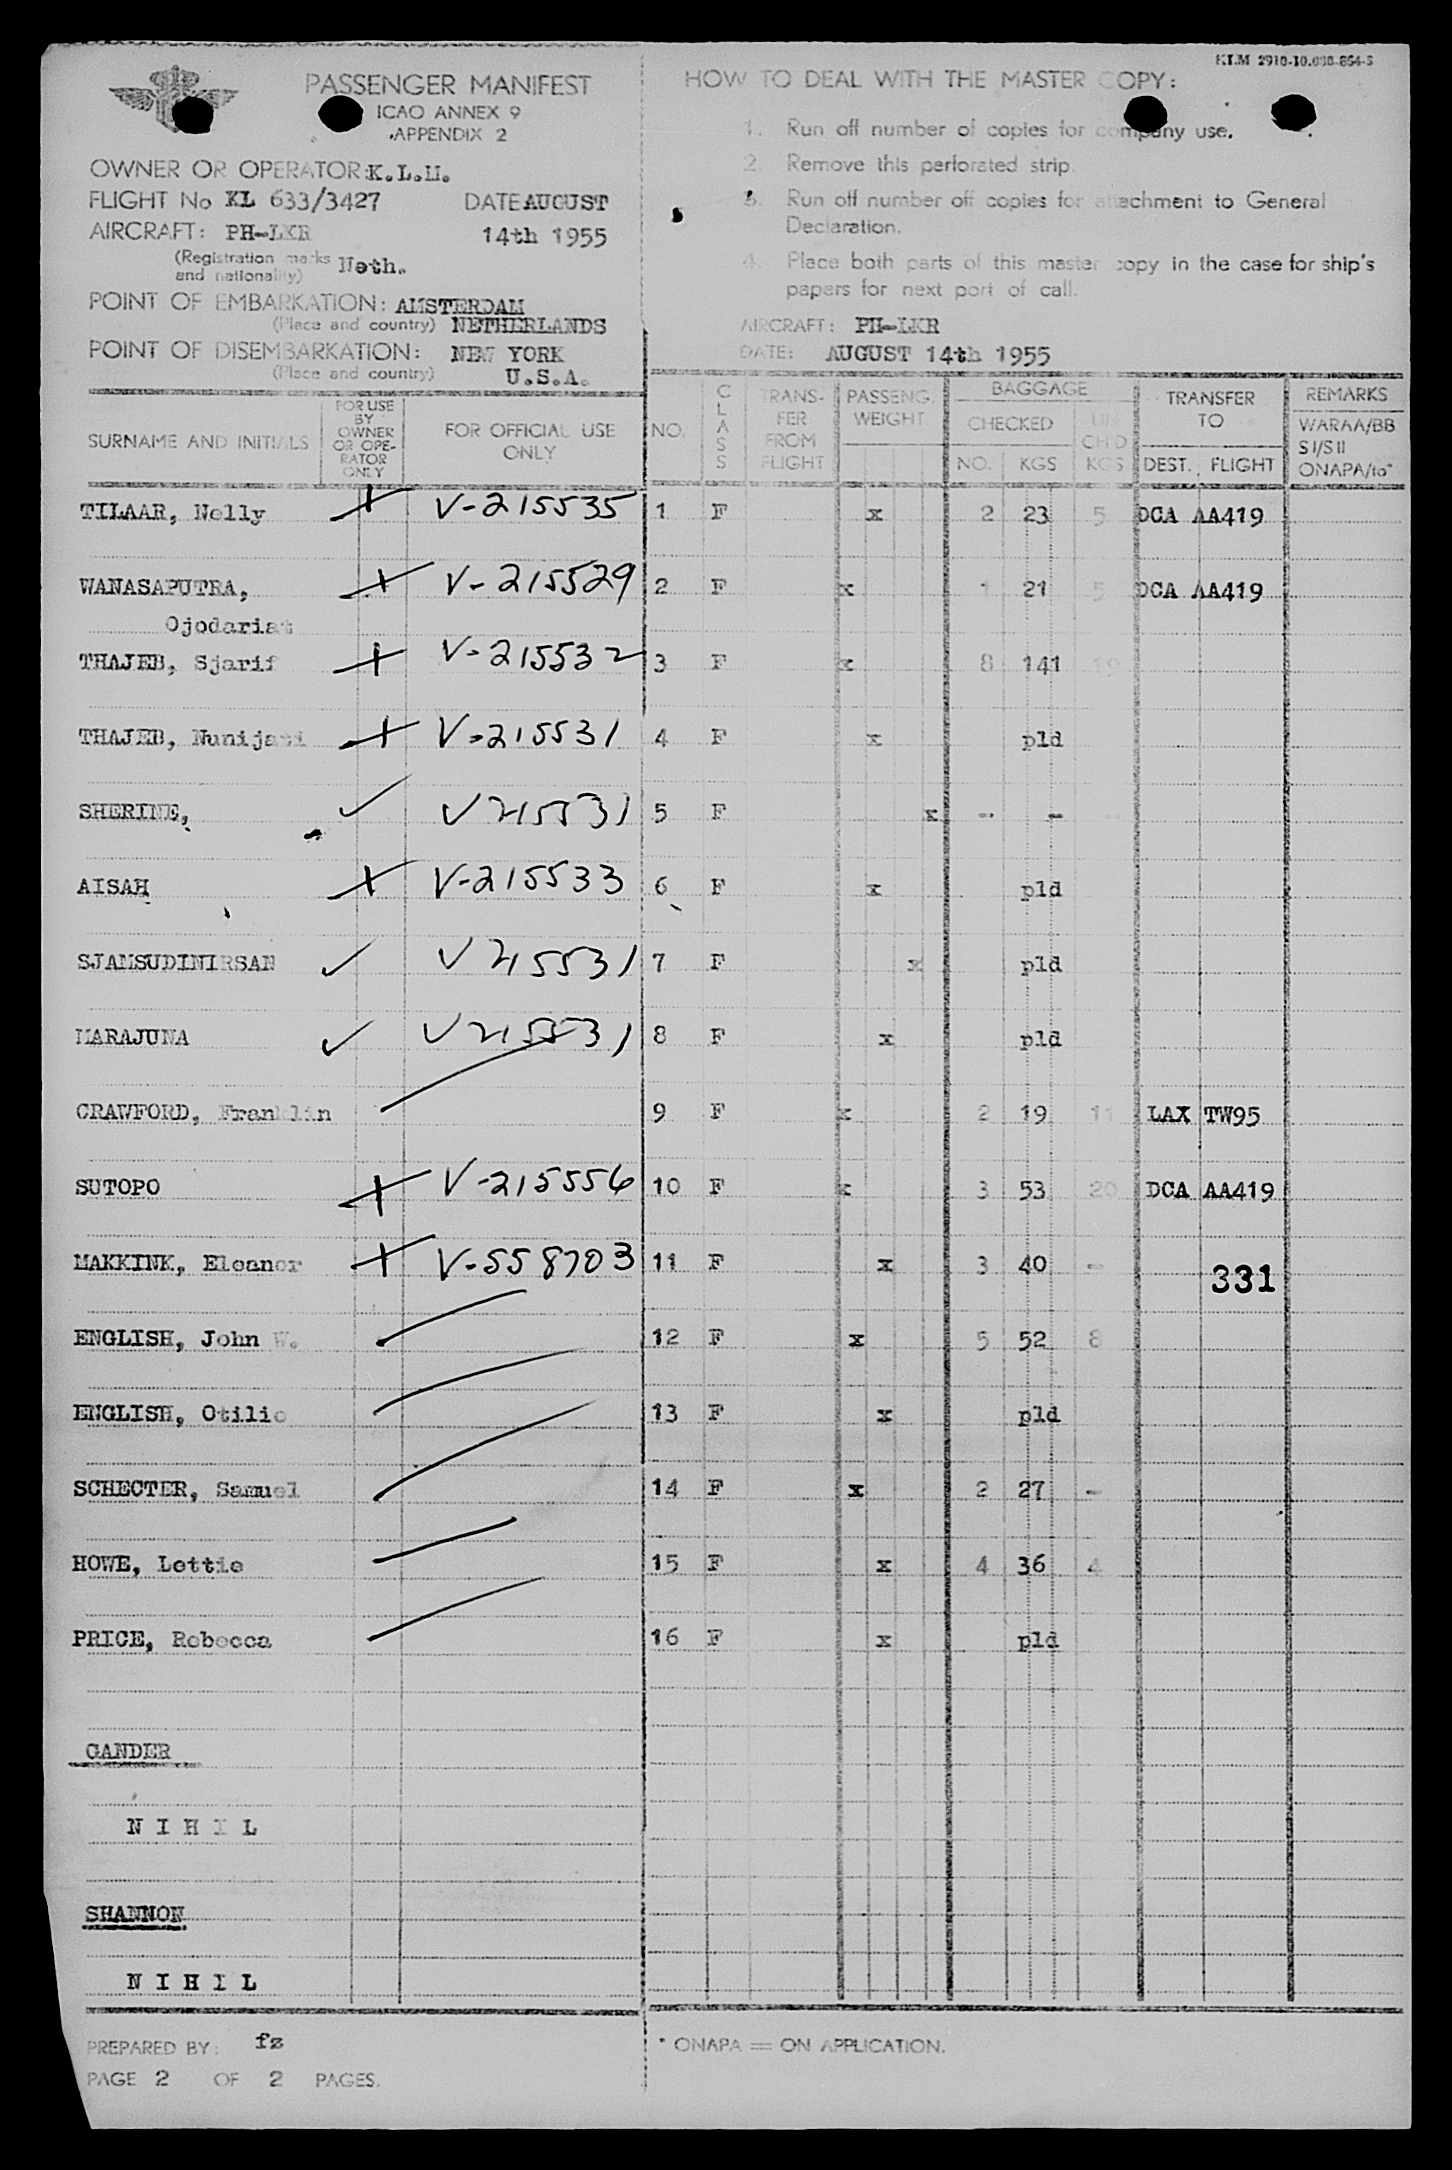 KLM 2910-10.000-854-S
PASSENGER MANIFEST
ICAO ANNEX 9
APPENDIX 2
OWNER OR OPERATOR: K.L.M.
FLIGHT No KL 633/3427 DATE AUGUST
AIRCRAFT: PH-LKR 14th 1955
(Registration marks
and nationality) Neth.
POINT OF EMBARKATION: AMSTERDAM
(Place and country) NETHERLANDS
POINT OF DISEMBARKATION: NEW YORK
(Place and country) U.S.A.
HOW TO DEAL WITH THE MASTER COPY:
1. Run off number of copies for company use.
2. Remove this perforated strip.
3. Run off number off copies for attachment to General
Declaration.
4. Place both parts of this master copy in the case for ship's
papers for next port of call.
AIRCRAFT: PH-LKR
DATE: AUGUST 14th 1955
SURNAME AND INITIALS
FOR USE
BY
OWNER
OR OPE-
RATOR
ONLY
FOR OFFICIAL USE
ONLY
NO.
CLASS
TRANS-
FER
FROM
FLIGHT
PASSENG.
WEIGHT
BAGGAGE
CHECKED
NO. KGS
UN
CH'D
KGS
TRANSFER
TO
DEST. FLIGHT
REMARKS
WARAA/BB
SI/SII
ONAPA/to*
TILAAR, Nelly V-215535 1 F x 2 23 5 DCA AA419
WANASAPUTRA, V-215529 2 F x 1 21 5 DCA AA419
Ojodariat
THAJEB, Sjarif V-215532 3 F x 8 141 19
THAJEB, Nunijati V-215531 4 F x pld
SHERINE, V215531 5 F x - -
AISAH V-215533 6 F x pld
SJAMSUDINIRSAN V215531 7 F x pld
MARAJUNA V215531 8 F x pld
CRAWFORD, Franklin 9 F x 2 19 11 LAX TW95
SUTOPO V-215556 10 F x 3 53 20 DCA AA419
MAKKINK, Eleanor V-558703 11 F x 3 40 - 331
ENGLISH, John W. 12 F x 5 52 8
ENGLISH, Otilie 13 F x pld
SCHECTER, Samuel 14 F x 2 27 -
HOWE, Lottie 15 F x 4 36 4
PRICE, Rebecca 16 F x pld
GANDER
N I H I L
SHANNON
N I H I L
PREPARED BY: fz
PAGE 2 OF 2 PAGES.
* ONAPA = ON APPLICATION.